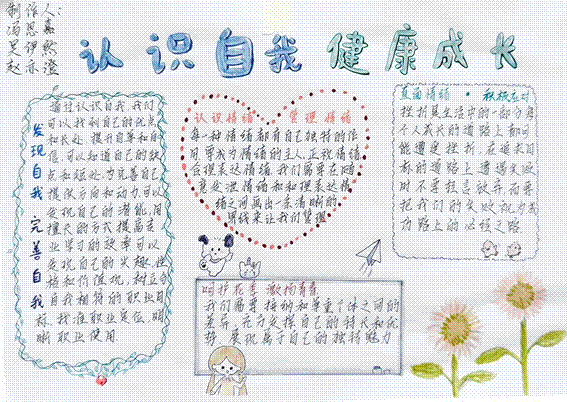 制作人:
冯恩嘉
吴伊然
赵亦澄
认识自我 健康成长
发现自我 完善自我
通过认识自我,我们
可以找到自己的优点
和长处,提升自尊和自
信,可以知道自己的缺
点和短处,为完善自己
提供方向和动力可以
发现自己的潜能,用
擅长的方式提高走
业学习的效率可以
发现自己的兴趣,性
格和价值观,树立与
自我相符的职业目
标,找准职业定位,明
晰职业使用.
认识情绪 管理情绪
每一种情绪都有自己独特的作
用,要成为情绪的主人,正视情绪,
合理表达情绪,我们需要在随
意处理情绪和和理表达情
绪之间画出一条清晰的
界线来让我们管理
直面情绪·积极应对
挫折是生活中的一部分每
个人成长的道路上都可
能遭受挫折,在追求目
标的道路上遭遇失败
时不要轻言放弃而要
把我们的失败视为成
功路上的必经之路
呵护花季 激扬青春
我们需要接纳和尊重个体之间的
差异,充分发挥自己的特长和优
势,展现属于自己的独特魅力